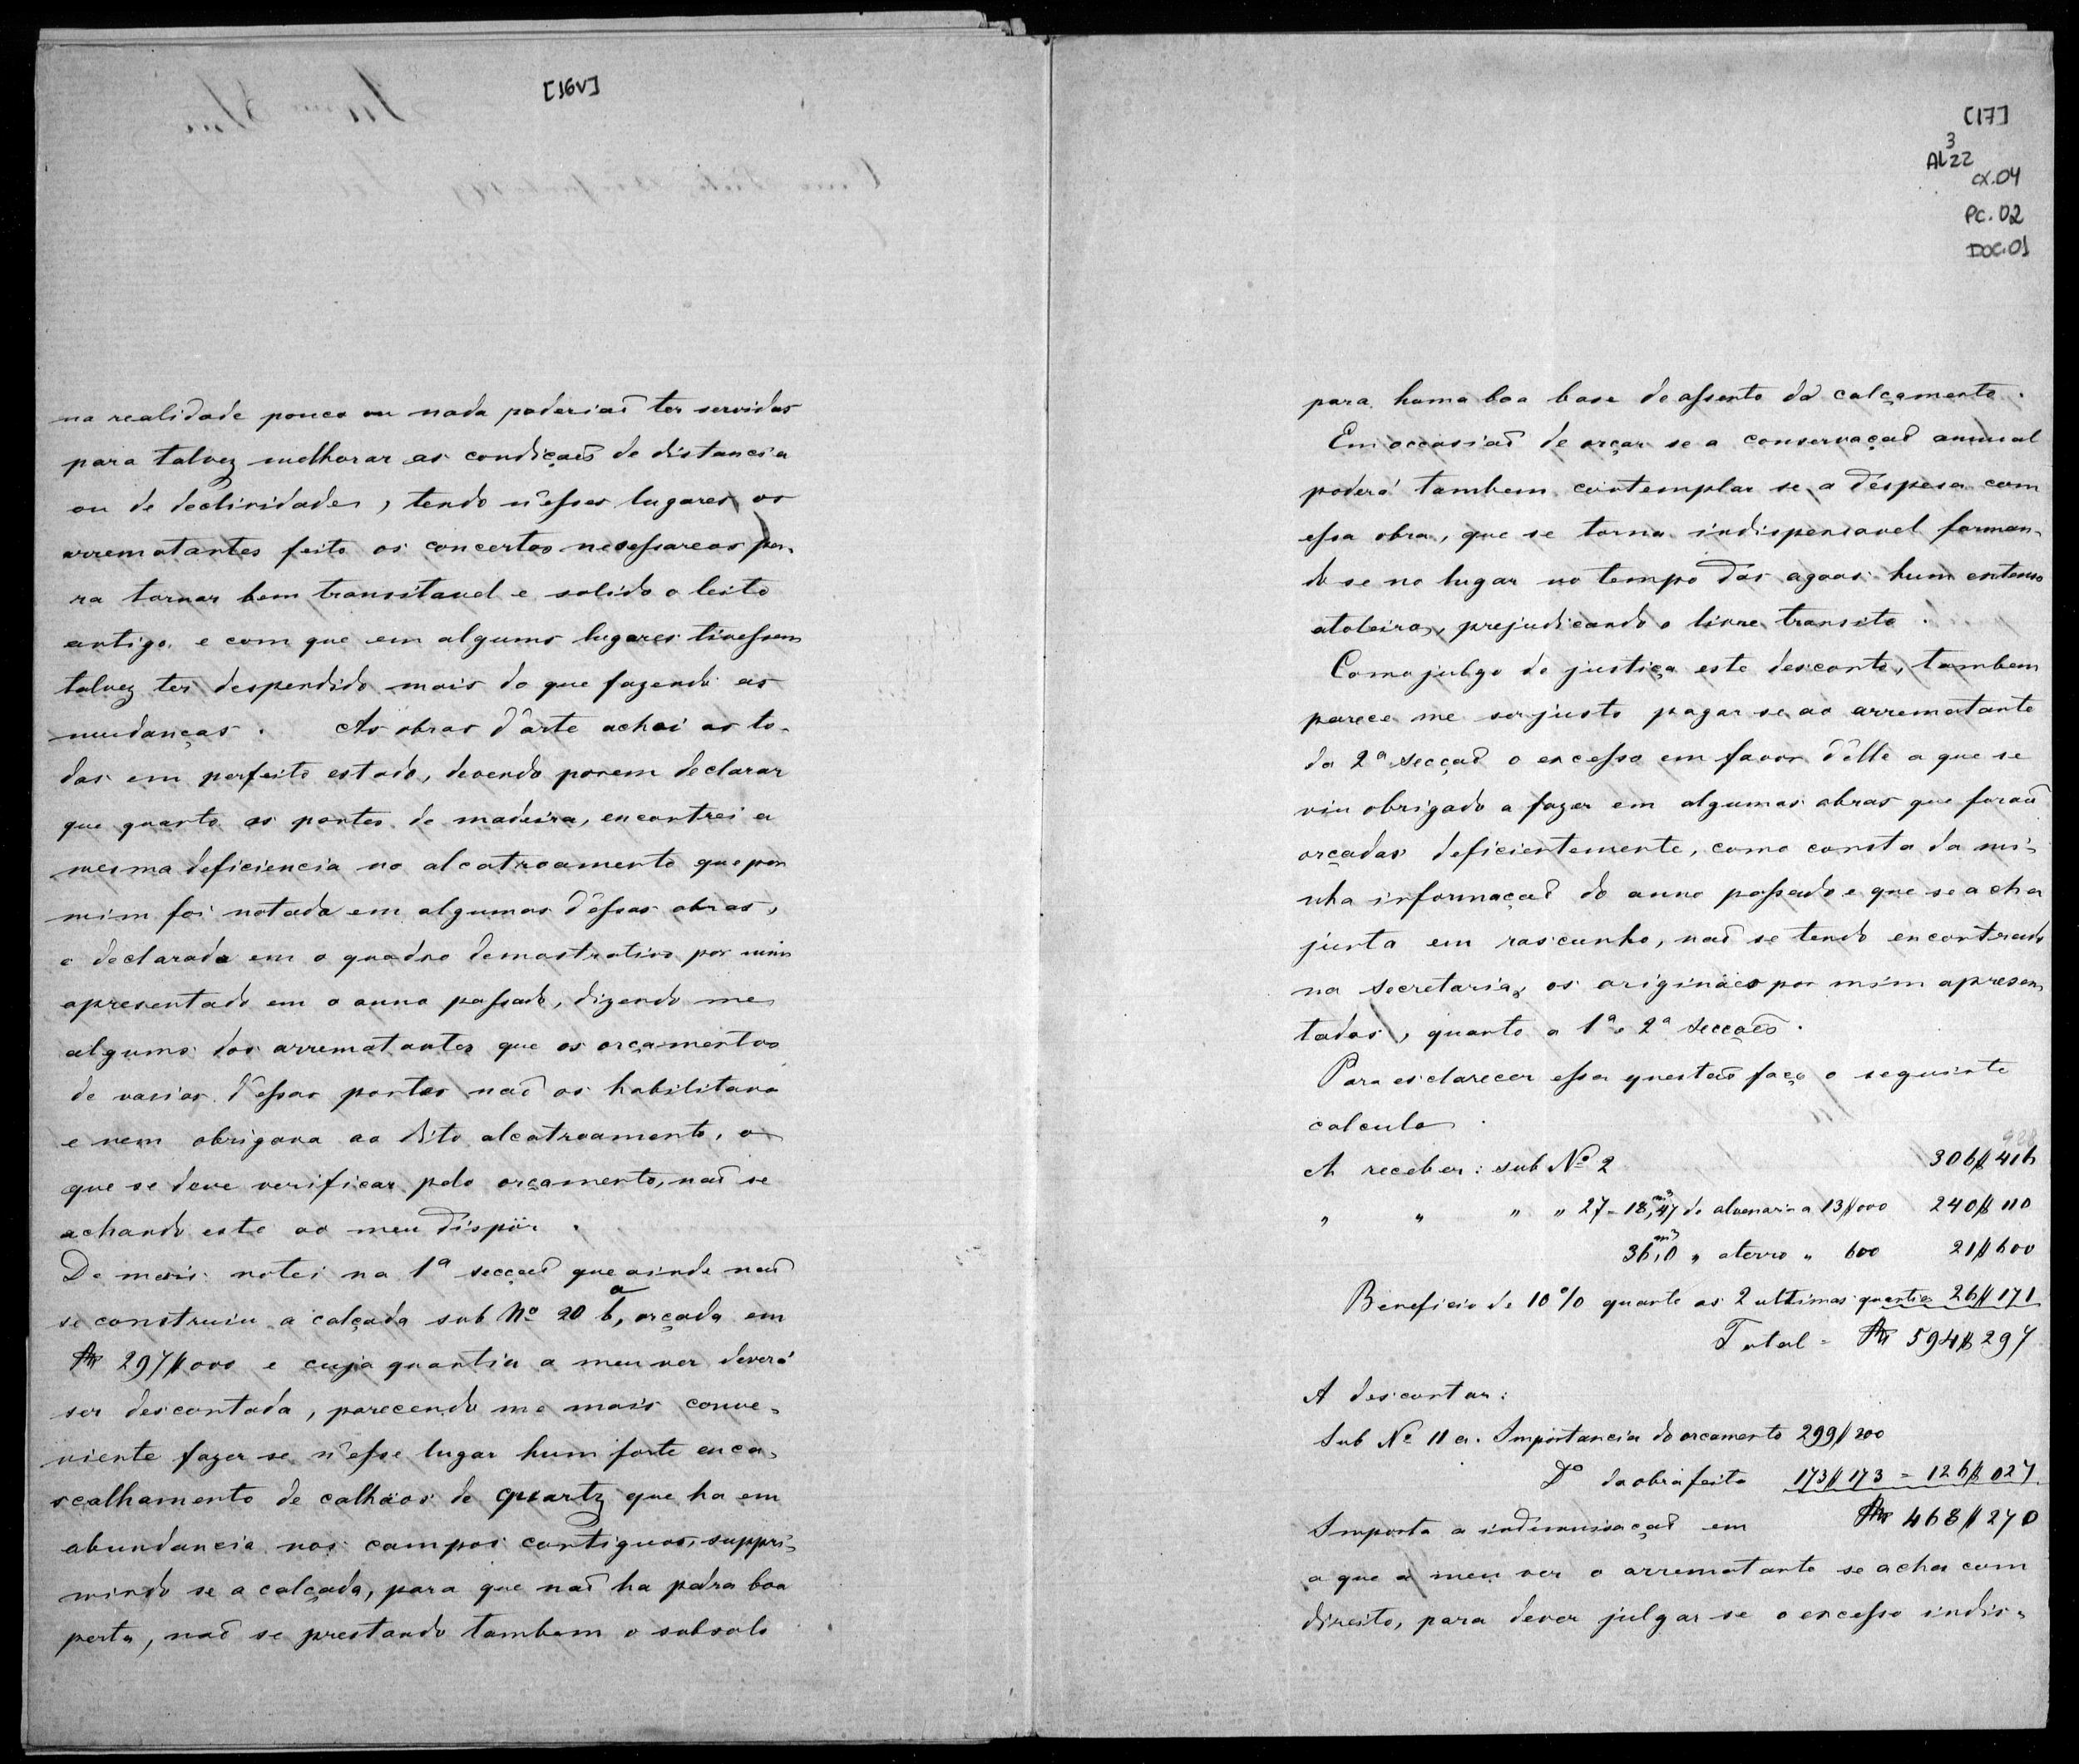 [16v]
na realidade pouco ou nada poderiaõ ter servidos
para talvez melhorar as condiçoẽs de distancia
ou de declividades, tendo n'esses lugares os
arrematantes feito os concertos necessareos pa-
ra tornar bem transitavel e solido o leito
antigo, e com que em algums lugares tivessem
talvez ter despendido mais do que fazendo as
mudanças. As obras d'arte achei as to-
das em perfeito estado, devendo porem declarar
que quanto as pontes de madeira, encontrei a
mesma deficiencia no alcatroamento que por
mim foi notada em algumas d'essas obras,
e declarada em o quadro demostrativo por mim
apresentado em o anno passado, dizendo me
algums dos arrematantes que os orçamentos
de varias d'essas pontes naõ os habilitava
e nem obrigava ao dito alcatroamento, o
que se deve verificar pelo orçamento, naõ se
achando este ao meu dispôr.
De mais notei na 1ª secçaõ que ainda naõ
se construiu a calçada sub Nº 20 b, orçada em
Rs 297$000 e cuja quantia a meu ver deverá
ser descontada, parecendo me mais conve-
niente fazer se n'esse lugar hum forte enca-
scalhamento de calhãos de quartz que ha em
abundancia nos campos contiguos, suppri-
mindo se a calçada, para que naõ ha pedra boa
perto, naõ se prestando tambem o subsolo
[17]
3
AL22
cx.04
Pc.02
Doc.01
para huma boa base de assento da calçamento.
Em occasiaõ de orçar se a conservaçaõ annual
poderá tambem contemplar se a despesa com
essa obra, que se torna indispensavel forman-
do se no lugar no tempo das agoas hum extenso
atoleiro, prejudicando o livre transito.
Como julgo de justiça este desconto, tambem
parece me ser justo pagar se ao arrematante
da 2ª secçaõ o excesso em favor d'elle a que se
viu obrigado a fazer em algumas obras que foraõ
orçadas deficientemente, como consta da mi-
nha informaçaõ do anno passado e que se acha
junta em rascunho, naõ se tendo encontrado
na secretaria, os originães por mim apresen-
tados, quanto a 1ª e 2ª secçoẽs.
Para esclarecer essa questaõ faço o seguinte
calculo.
A receber: sub Nº 2 306$416
" " " " 27 - 18,47 m3 de alvenaria a 13$000 240$110
36,0 m3 " aterro " 600 21$600
Beneficio de 10% quanto as 2 ultimas quantias 26$171
Total = Rs 594$297
A descontar:
Sub Nº 11 a. Importancia do orcamento 299$200
Do da obra feita 173$173 = 126$027
Importa a indemnisaçaõ em Rs 468$270
a que a meu ver o arrematante se acha com
direito, para dever julgar se o excesso indis-